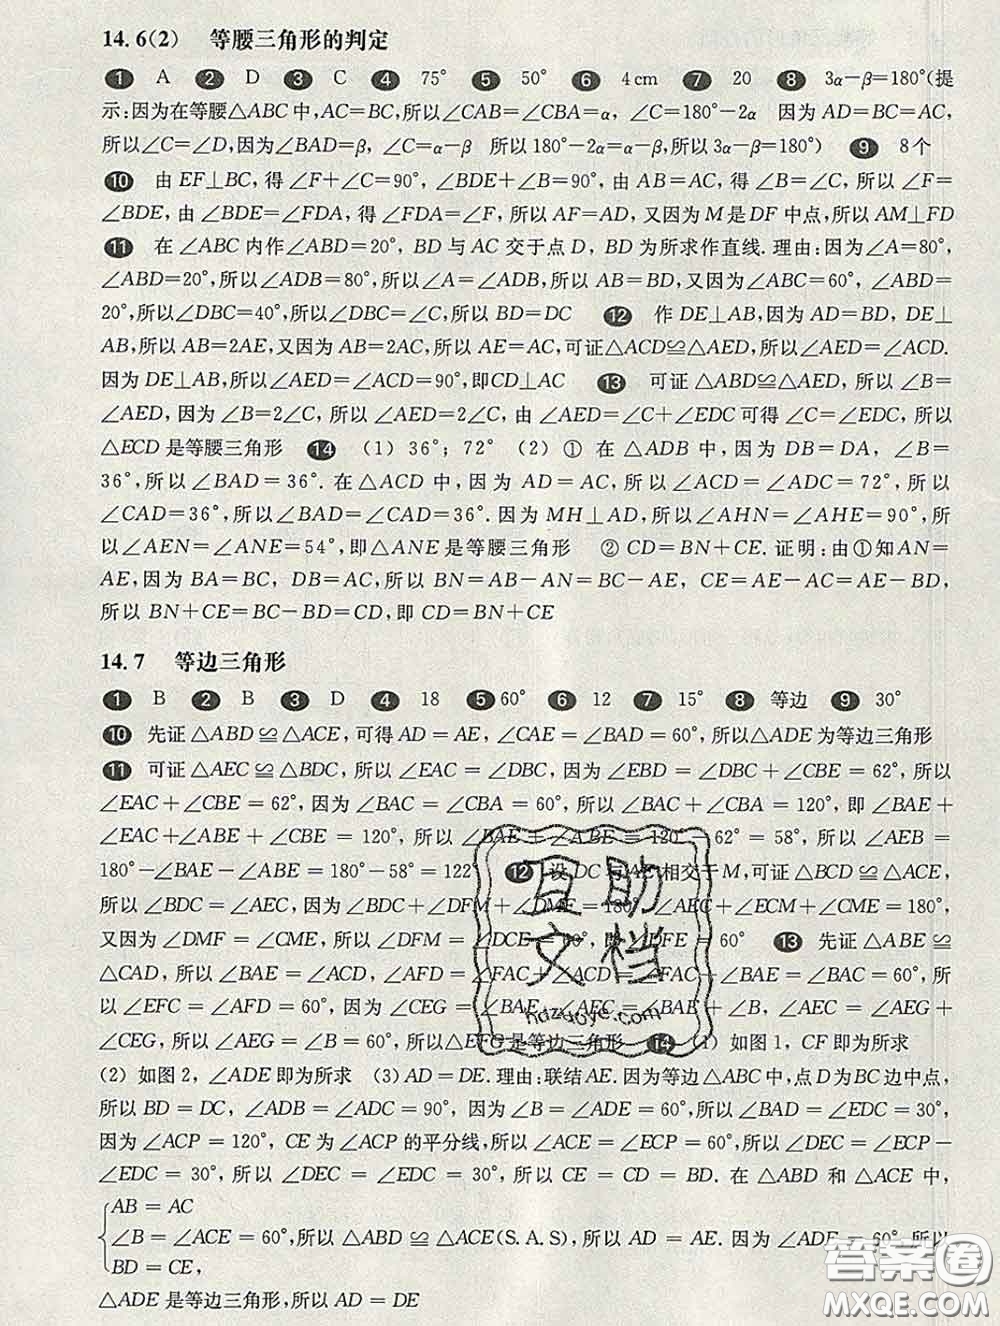 14.6(2) 等腰三角形的判定
1 A 2 D 3 C 4 75° 5 50° 6 4 cm 7 20 8 3α－β＝180°(提
示:因为在等腰△ABC中,AC＝BC,所以∠CAB＝∠CBA＝α, ∠C＝180°－2α 因为 AD＝BC＝AC,
所以∠C＝∠D,因为∠BAD＝β, ∠C＝α－β 所以180°－2α＝α－β,所以3α－β＝180°) 9 8个
10 由 EF⊥BC, 得 ∠F＋∠C＝90°, ∠BDE＋∠B＝90°, 由 AB＝AC, 得 ∠B＝∠C, 所以 ∠F＝
∠BDE, 由 ∠BDE＝∠FDA, 得 ∠FDA＝∠F, 所以 AF＝AD, 又因为 M 是 DF 中点,所以 AM⊥FD
11 在 ∠ABC 内作 ∠ABD＝20°, BD 与 AC 交于点 D, BD 为所求作直线. 理由:因为∠A＝80°,
∠ABD＝20°,所以∠ADB＝80°,所以∠A＝∠ADB,所以AB＝BD,又因为∠ABC＝60°, ∠ABD＝
20°,所以∠DBC＝40°,所以∠DBC＝∠C,所以 BD＝DC 12 作 DE⊥AB,因为 AD＝BD, DE⊥
AB,所以 AB＝2AE,又因为 AB＝2AC,所以 AE＝AC,可证△ACD≌△AED,所以∠AED＝∠ACD.
因为 DE⊥AB,所以∠AED＝∠ACD＝90°,即CD⊥AC 13 可证 △ABD≌△AED, 所以 ∠B＝
∠AED, 因为 ∠B＝2∠C, 所以 ∠AED＝2∠C, 由 ∠AED＝∠C＋∠EDC 可得 ∠C＝∠EDC, 所以
△ECD 是等腰三角形 14 (1) 36°; 72° (2) ① 在 △ADB 中, 因为 DB＝DA, ∠B＝
36°, 所以 ∠BAD＝36°. 在 △ACD 中, 因为 AD＝AC, 所以 ∠ACD＝∠ADC＝72°, 所以
∠CAD＝36°, 所以 ∠BAD＝∠CAD＝36°. 因为 MH⊥AD, 所以 ∠AHN＝∠AHE＝90°, 所
以 ∠AEN＝∠ANE＝54°, 即△ANE 是等腰三角形 ② CD＝BN＋CE. 证明:由①知AN＝
AE, 因为 BA＝BC, DB＝AC, 所以 BN＝AB－AN＝BC－AE, CE＝AE－AC＝AE－BD,
所以 BN＋CE＝BC－BD＝CD, 即 CD＝BN＋CE
14.7 等边三角形
1 B 2 B 3 D 4 18 5 60° 6 12 7 15° 8 等边 9 30°
10 先证 △ABD ≌ △ACE, 可得 AD ＝ AE, ∠CAE ＝ ∠BAD ＝ 60°, 所以△ADE 为等边三角形
11 可证 △AEC ≌ △BDC, 所以 ∠EAC ＝ ∠DBC, 因为 ∠EBD ＝ ∠DBC ＋ ∠CBE ＝ 62°, 所以
∠EAC ＋ ∠CBE ＝ 62°, 因为 ∠BAC ＝ ∠CBA ＝ 60°, 所以 ∠BAC ＋ ∠CBA ＝ 120°, 即 ∠BAE ＋
∠EAC ＋ ∠ABE ＋ ∠CBE ＝ 120°, 所以 ∠BAE ＋ ∠ABE ＝ 120° － 62° ＝ 58°, 所以 ∠AEB ＝
180° － ∠BAE － ∠ABE ＝ 180° － 58° ＝ 122° 12 设 DC 与 AE 相交于 M, 可证 △BCD ≌ △ACE,
所以 ∠BDC ＝ ∠AEC, 因为 ∠BDC ＋ ∠DFM ＋ ∠DMF ＝ 180°, ∠AEC ＋ ∠ECM ＋ ∠CME ＝ 180°,
又因为 ∠DMF ＝ ∠CME, 所以 ∠DFM ＝ ∠DCE ＝ 60°, 即 ∠DFE ＝ 60° 13 先证 △ABE ≌
△CAD, 所以 ∠BAE ＝ ∠ACD, ∠AFD ＝ ∠FAC ＋ ∠ACD ＝ ∠FAC ＋ ∠BAE ＝ ∠BAC ＝ 60°, 所
以 ∠EFC ＝ ∠AFD ＝ 60°, 因为 ∠CEG ＝ ∠BAE, ∠AEC ＝ ∠BAE ＋ ∠B, ∠AEC ＝ ∠AEG ＋
∠CEG, 所以 ∠AEG ＝ ∠B ＝ 60°, 所以△EFG 是等边三角形 14 (1) 如图 1, CF 即为所求
(2) 如图 2, ∠ADE 即为所求 (3) AD ＝ DE. 理由:联结 AE. 因为等边 △ABC 中,点 D 为 BC 边中点,
所以 BD ＝ DC, ∠ADB ＝ ∠ADC ＝ 90°, 因为 ∠B ＝ ∠ADE ＝ 60°, 所以 ∠BAD ＝ ∠EDC ＝ 30°,
因为 ∠ACP ＝ 120°, CE 为 ∠ACP 的平分线,所以 ∠ACE ＝ ∠ECP ＝ 60°, 所以 ∠DEC ＝ ∠ECP －
∠EDC ＝ 30°, 所以 ∠DEC ＝ ∠EDC ＝ 30°, 所以 CE ＝ CD ＝ BD. 在 △ABD 和 △ACE 中,
AB ＝ AC
∠B ＝ ∠ACE ＝ 60°, 所以 △ABD ≌ △ACE(S. A. S), 所以 AD ＝ AE. 因为 ∠ADE ＝ 60°, 所以
BD ＝ CE,
△ADE 是等边三角形, 所以 AD ＝ DE
互助
文档
hdzuoye.com
答案圈
MXQE.COM